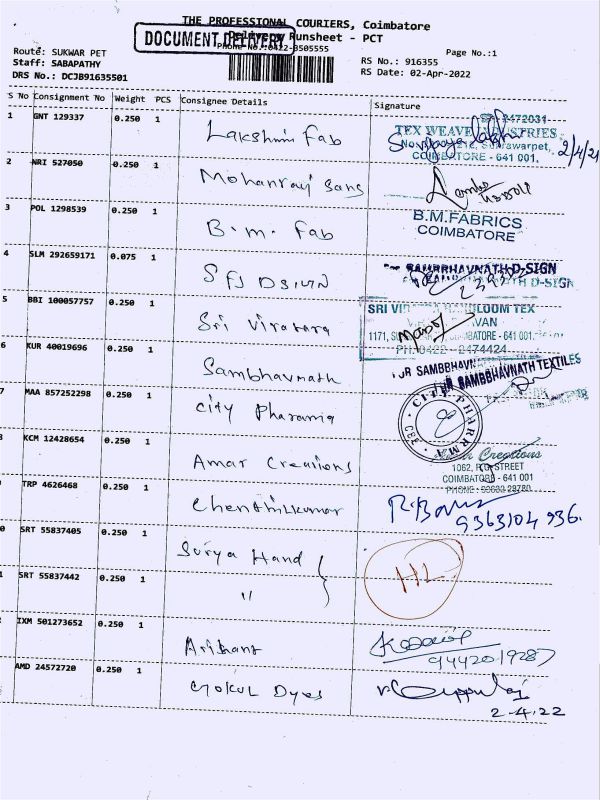 THE PROFESSIONAL COURIERS, Coimbatore
Delivery Runsheet - PCT
DOCUMENT DELIVERY
Phone No.:0422-3505555
Page No.:1
Route: SUKWAR PET
Staff: SABAPATHY
DRS No.: DCJB91635501
RS No.: 916355
RS Date: 02-Apr-2022
S No Consignment No Weight PCS Consignee Details Signature
1 GNT 129337 0.250 1 Lakshmi Fab
2472031
TEX WEAVE INDUSTRIES
Sukrawarpet,
COIMBATORE - 641 001.
2 NRI 527050 0.250 1 Mohanraj Sans
3 POL 1298539 0.250 1 B.M. Fab
B.M.FABRICS
COIMBATORE
4 SLM 292659171 0.075 1
SAMBBHAVNATH D-SIGN
5 BBI 100057757 0.250 1 Sri
SRI HANDLOOM TEX
1171, COIMBATORE - 641 001.
PH:0422 - 2474424
6 KUR 40019696 0.250 1 Sambhavnath
FOR SAMBBHAVNATH TEXTILES
7 MAA 857252298 0.250 1 City Pharamig
CITY PHARRMA
8 KCM 12428654 0.250 1 Amar Creations
Creations
1062, STREET
COIMBATORE - 641 001
TRP 4626468 0.250 1 Chenthilkumar
9363104 936.
0 SRT 55837405 0.250 1 Surya Hand
1 SRT 55837442 0.250 1 "
IXM 501273652 0.250 1 Arihant
9442019287
AMD 24572720 0.250 1 Gokul Dyes
2-4.22